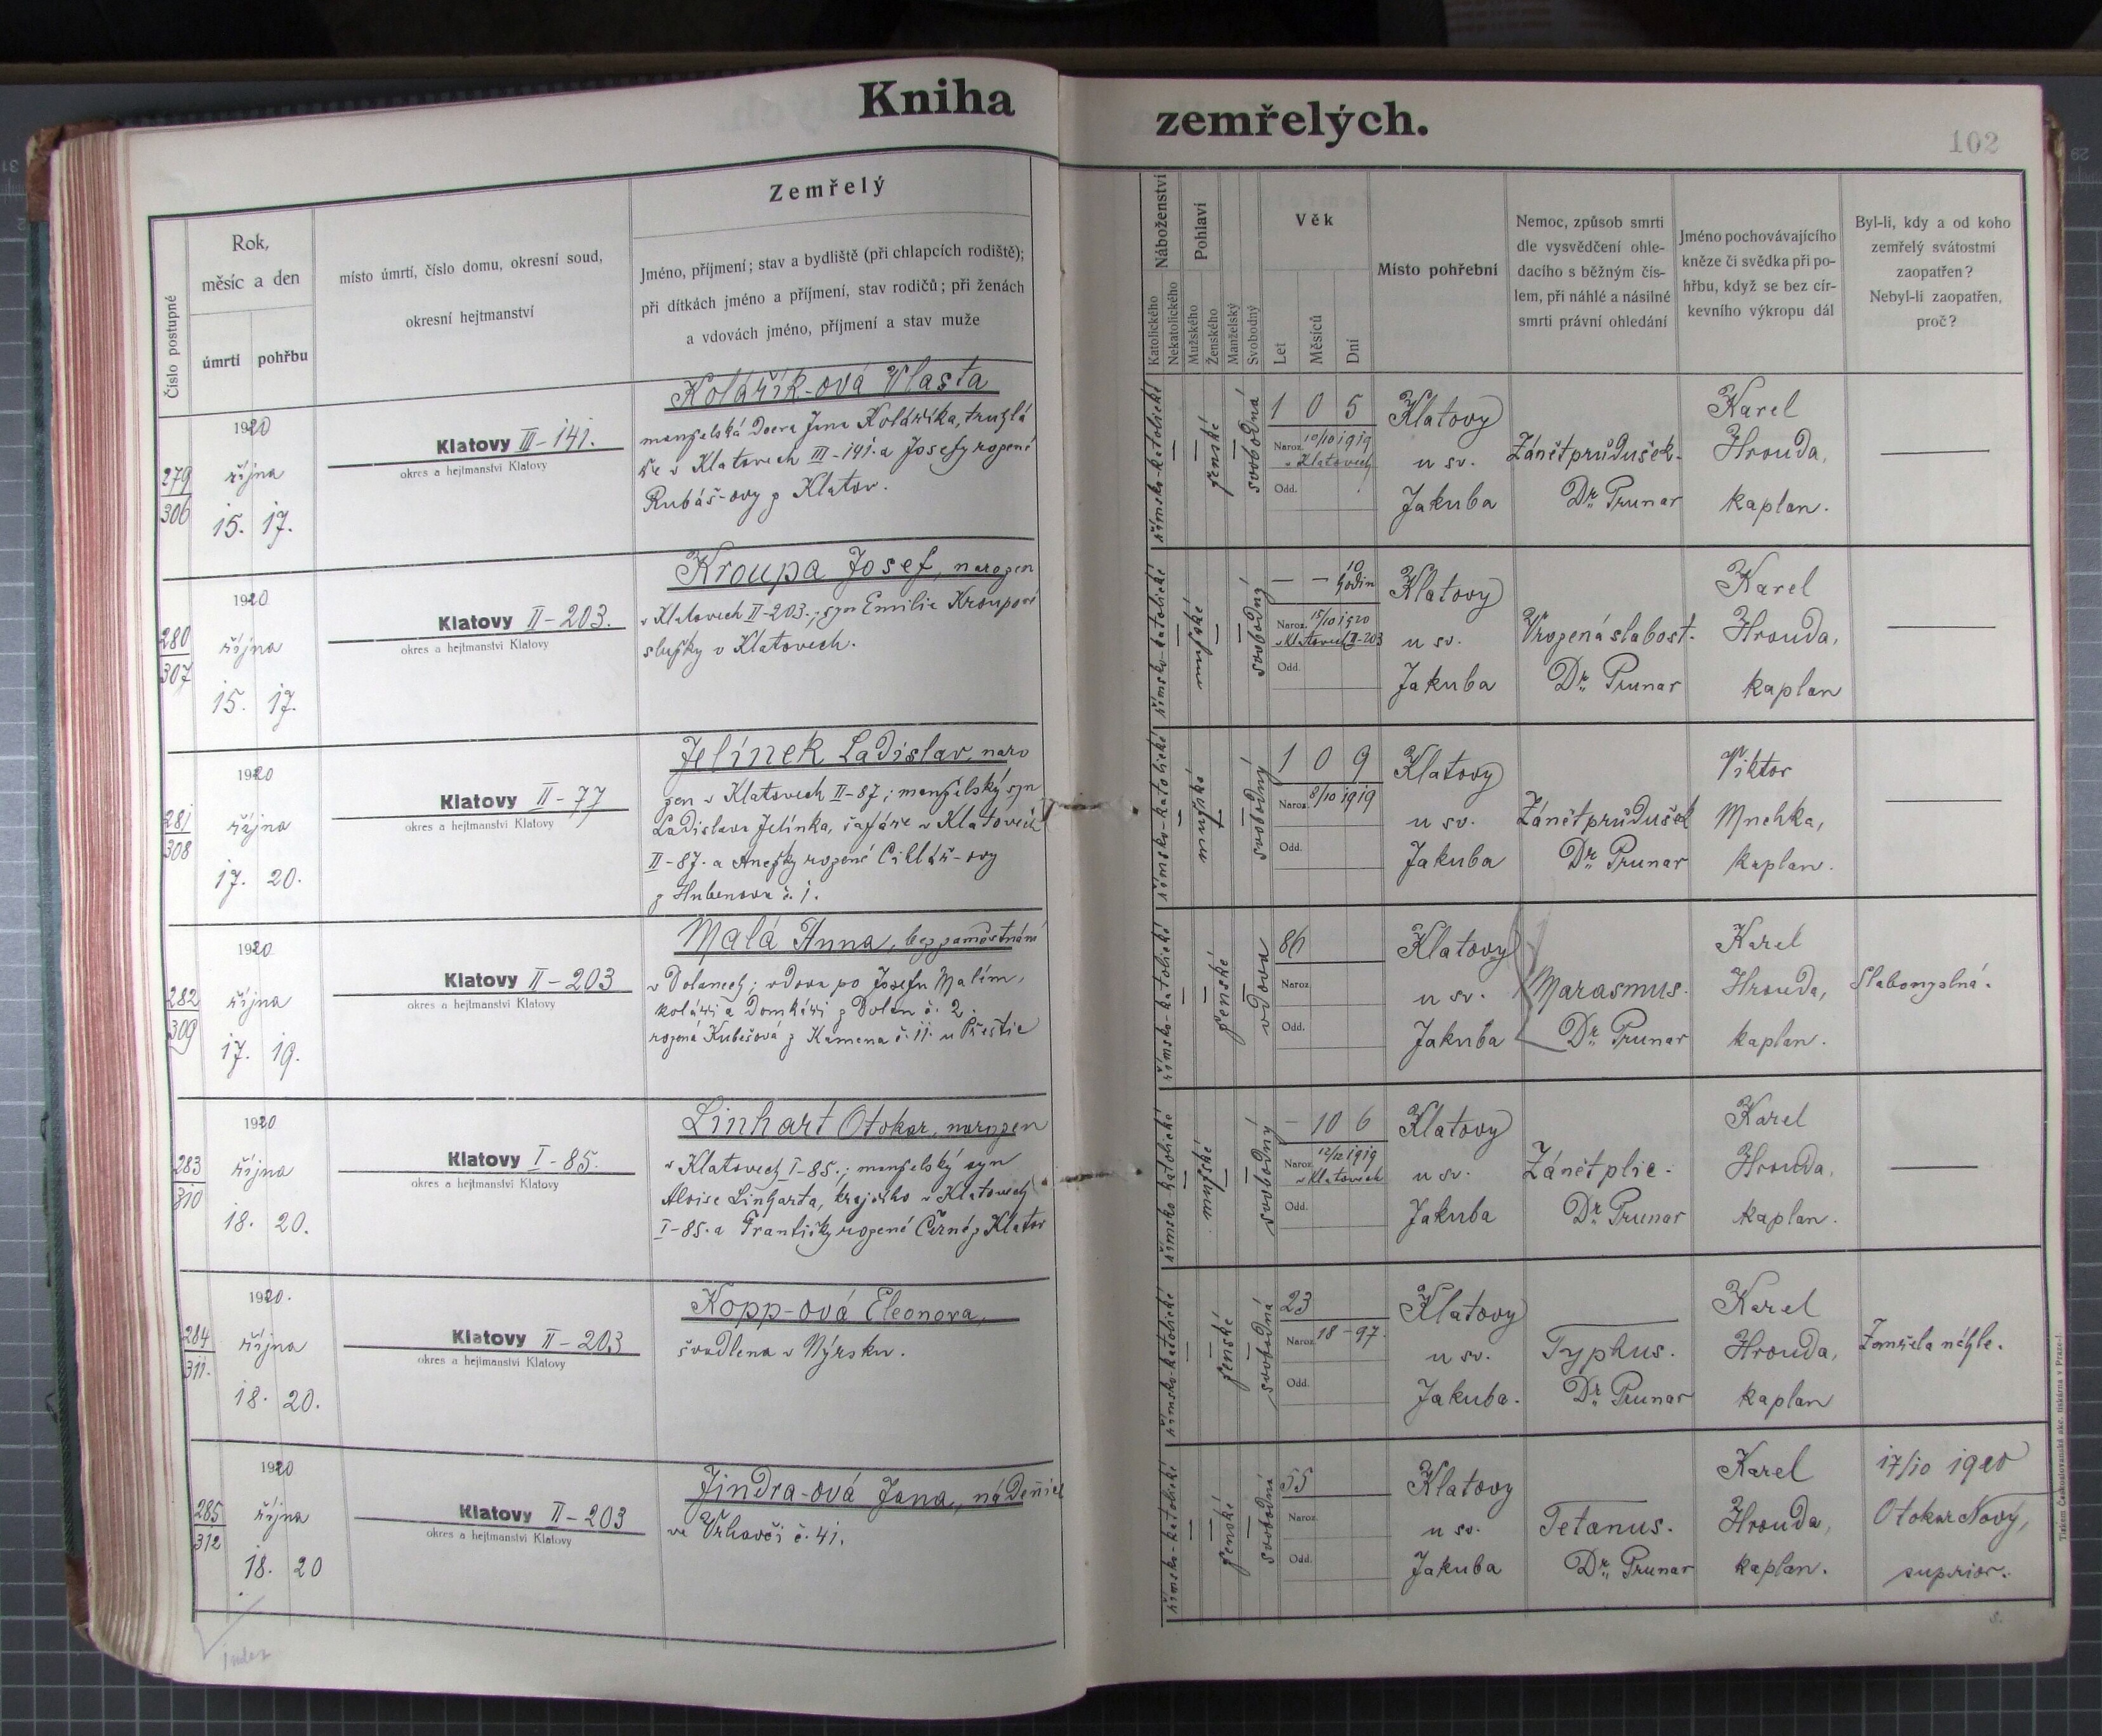 Kniha zemřelých.
102
Číslo postupné
Rok,
měsíc a den
úmrtí
pohřbu
místo úmrtí, číslo domu, okresní soud,
okresní hejtmanství
Zemřelý
Jméno, příjmení; stav a bydliště (při chlapcích rodiště);
při dítkách jméno a příjmení, stav rodičů; při ženách
a vdovách jméno, příjmení a stav muže
Náboženství
Katolického
Nekatolického
Pohlaví
Mužského
Ženského
Manželský
Svobodný
Věk
Let
Měsíců
Dní
Místo pohřební
Nemoc, způsob smrti
dle vysvědčení ohle-
dacího s běžným čís-
lem, při náhlé a násilné
smrti právní ohledání
Jméno pochovávajícího
kněze či svědka při po-
hřbu, když se bez cír-
kevního výkropu dál
Byl-li, kdy a od koho
zemřelý svátostmi
zaopatřen?
Nebyl-li zaopatřen,
proč?
279
306
1920
října
15. 17.
Klatovy III-141.
okres a hejtmanství Klatovy
Kolářík-ová Vlasta
manželská dcera Jana Koláříka, truhlá
ře v Klatovech III-141. a Josefy rozené
Rubáš-ovy z Klatov.
římsko-katolické
ženské
svobodná
1 0 5
Naroz. 10/10 1919
v Klatovech
Odd.
Klatovy
u sv.
Jakuba
Zánět průdušek.
Dr. Prunar
Karel
Hrouda,
kaplan.
280
307
1920
října
15. 17.
Klatovy II-203.
okres a hejtmanství Klatovy
Kroupa Josef, narozen
v Klatovech II-203.; syn Emilie Kroupové
služky v Klatovech.
římsko-katolické
mužské
svobodný
— — 10 hodin
Naroz. 15/10 1920
v Klatovech II-203
Odd.
Klatovy
u sv.
Jakuba
Vrozená slabost.
Dr. Prunar
Karel
Hrouda,
kaplan
281
308
1920
října
17. 20.
Klatovy II-77
okres a hejtmanství Klatovy
Jelínek Ladislav, naro
zen v Klatovech II-87; manželský syn
Ladislava Jelínka, šafáře v Klatovech
II-87. a Anežky rozené Cihlář-ovy
z Hubenova č. 1.
římsko-katolické
mužské
svobodný
1 0 9
Naroz. 8/10 1919
Odd.
Klatovy
u sv.
Jakuba
Zánět průdušek
Dr. Prunar
Viktor
kaplan.
282
309
1920
října
17. 19.
Klatovy II-203
okres a hejtmanství Klatovy
Malá Anna, bez zaměstnání
v Dolanech; vdova po Josefu Malím,
koláři a domkáři z Dolan č. 2.
rozená Kubešová z Kamena č. 11. u Přeštic
římsko-katolické
ženské
vdova
86
Naroz.
Odd.
Klatovy
u sv.
Jakuba
Marasmus.
Dr. Prunar
Karel
Hrouda,
kaplan.
Slabomyslná.
283
310
1920
října
18. 20.
Klatovy I-85.
okres a hejtmanství Klatovy
Linhart Otokar, narozen
v Klatovech I-85.; manželský syn
Aloise Linharta, krajčího v Klatovech
I-85. a Františky rozené Černé z Klatov
římsko-katolické
mužské
svobodný
— 10 6
Naroz. 12/12 1919
v Klatovech
Odd.
Klatovy
u sv.
Jakuba
Zánět plic.
Dr. Prunar
Karel
Hrouda,
kaplan.
284
311.
1920.
října
18. 20.
Klatovy II-203
okres a hejtmanství Klatovy
Kopp-ová Eleonora,
švadlena v Nýrsku.
římsko-katolické
ženské
svobodná
23
Naroz. 18-97.
Odd.
Klatovy
u sv.
Jakuba.
Typhus.
Dr. Prunar
Karel
Hrouda,
kaplan
Zemřela náhle.
285
312
1920
října
18. 20
Klatovy II-203
okres a hejtmanství Klatovy
Jindra-ová Jana, nádenice
ve Vrhovči č. 41.
římsko-katolické
ženské
svobodná
55
Naroz.
Odd.
Klatovy
u sv.
Jakuba
Tetanus.
Dr. Prunar
Karel
Hrouda,
kaplan.
17/10 1920
Otokar Nový,
superior.
index
Tiskem Československá akc. tiskárna v Praze-I.